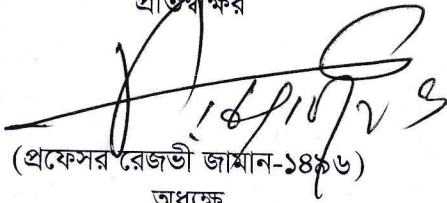 প্রতিস্বাক্ষর
(প্রফেসর রেজভী জামান-১৪৪৬)
অধ্যক্ষ